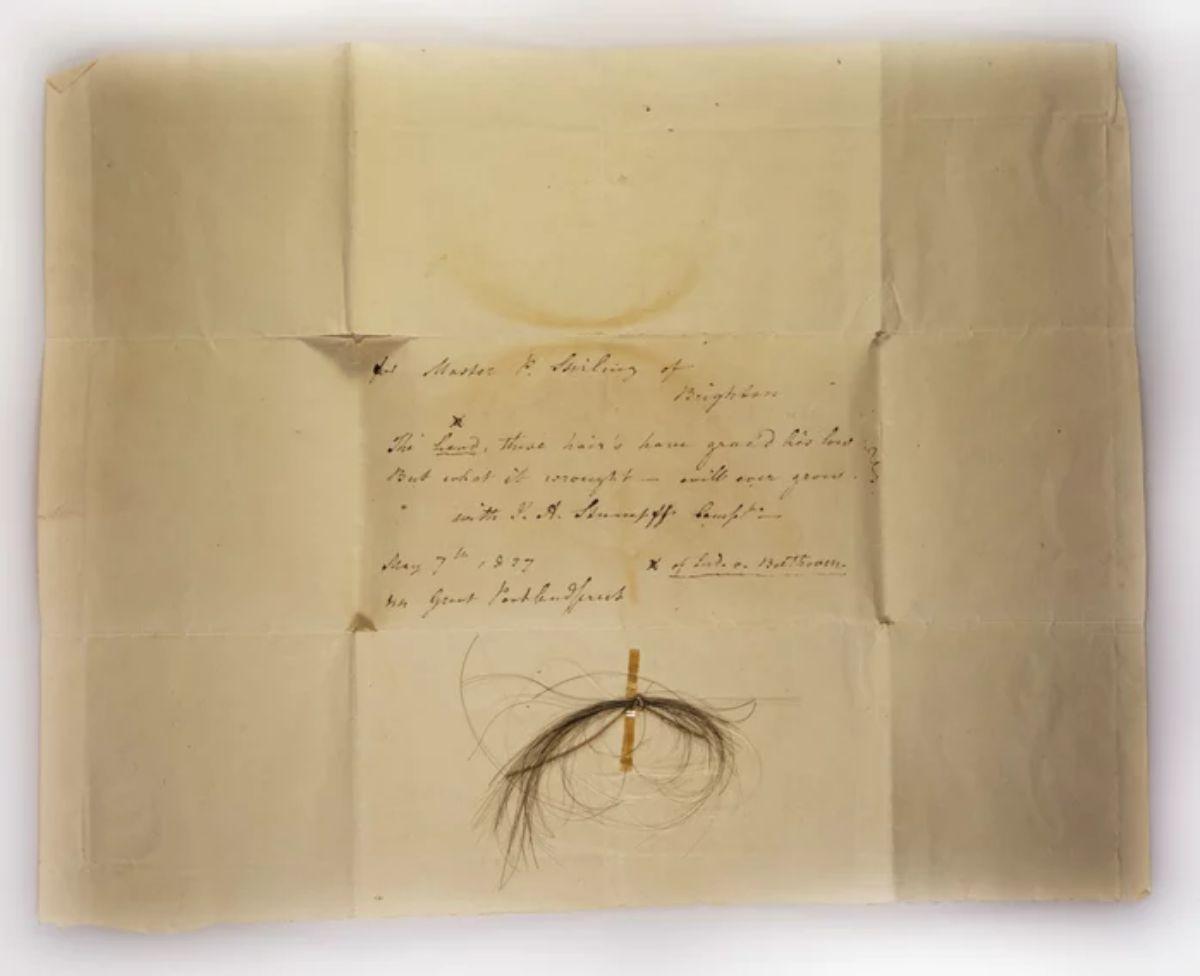 for Master P. Stirling of
Brighton
x
The head, these hair's have grac'd lies low
But what it wrought — will ever grow.
with J. A. Stumpff's Compts—
May 7th 1827
x of Lud. v. Beethoven.
Great Portland Street